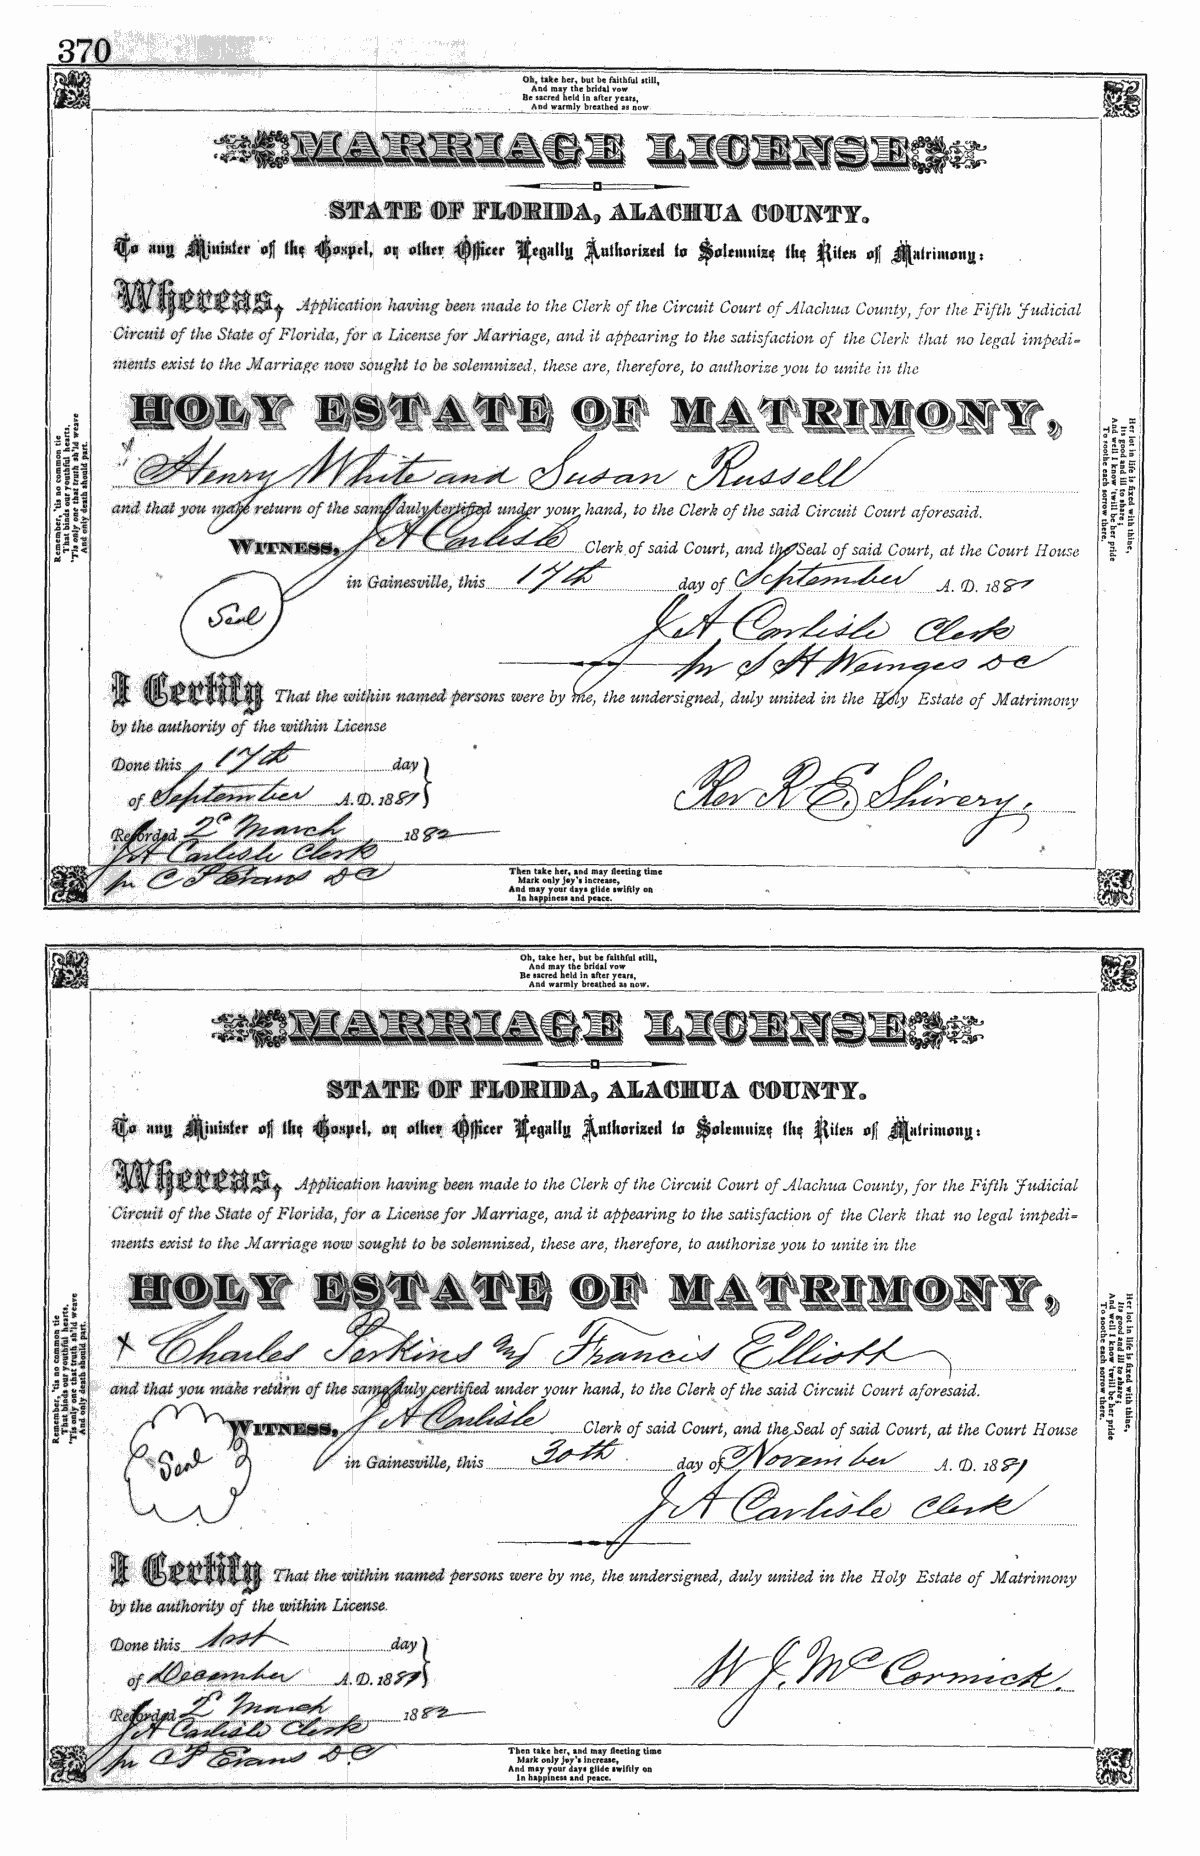 370
Oh, take her, but be faithful still,
And may the bridal vow
Be sacred held in after years,
And warmly breathed as now.
MARRIAGE LICENSE
STATE OF FLORIDA, ALACHUA COUNTY.
To any Minister of the Gospel, or other Officer Legally Authorized to Solemnize the Rites of Matrimony:
Whereas, Application having been made to the Clerk of the Circuit Court of Alachua County, for the Fifth Judicial
Circuit of the State of Florida, for a License for Marriage, and it appearing to the satisfaction of the Clerk that no legal impedi-
ments exist to the Marriage now sought to be solemnized, these are, therefore, to authorize you to unite in the
HOLY ESTATE OF MATRIMONY,
x Henry White and Susan Russell
and that you make return of the same duly certified under your hand, to the Clerk of the said Circuit Court aforesaid.
WITNESS, J A Carlisle Clerk of said Court, and the Seal of said Court, at the Court House
in Gainesville, this 17th day of September A. D. 1881
Seal
J A Carlisle Clerk
pr S H Weinges DC
I Certify That the within named persons were by me, the undersigned, duly united in the Holy Estate of Matrimony
by the authority of the within License
Done this 17th day
of September A. D. 1881
Rev R E. Shivery.
Recorded 2d March 1882
J A Carlisle Clerk
pr C P Evans DC
Remember, 'tis no common tie
That binds our youthful hearts,
'Tis only one that truth sh'ld weave
And only death should part.
Her lot in life is fixed with thine,
Its good and ill to share;
And well I know 'twill be her pride
To soothe each sorrow there.
Then take her, and may fleeting time
Mark only joy's increase,
And may your days glide swiftly on
In happiness and peace.
Oh, take her, but be faithful still,
And may the bridal vow
Be sacred held in after years,
And warmly breathed as now.
MARRIAGE LICENSE
STATE OF FLORIDA, ALACHUA COUNTY.
To any Minister of the Gospel, or other Officer Legally Authorized to Solemnize the Rites of Matrimony:
Whereas, Application having been made to the Clerk of the Circuit Court of Alachua County, for the Fifth Judicial
Circuit of the State of Florida, for a License for Marriage, and it appearing to the satisfaction of the Clerk that no legal impedi-
ments exist to the Marriage now sought to be solemnized, these are, therefore, to authorize you to unite in the
HOLY ESTATE OF MATRIMONY,
x Charles Perkins and Francis Elliott
and that you make return of the same duly certified under your hand, to the Clerk of the said Circuit Court aforesaid.
WITNESS, J A Carlisle Clerk of said Court, and the Seal of said Court, at the Court House
in Gainesville, this 30th day of November A. D. 1881
Seal
J A Carlisle Clerk
I Certify That the within named persons were by me, the undersigned, duly united in the Holy Estate of Matrimony
by the authority of the within License.
Done this 1rst day
of December A. D. 1881
W J. McCormick.
Recorded 2d March 1882
J A Carlisle Clerk
pr C P Evans DC
Remember, 'tis no common tie
That binds our youthful hearts,
'Tis only one that truth sh'ld weave
And only death should part.
Her lot in life is fixed with thine,
Its good and ill to share;
And well I know 'twill be her pride
To soothe each sorrow there.
Then take her, and may fleeting time
Mark only joy's increase,
And may your days glide swiftly on
In happiness and peace.